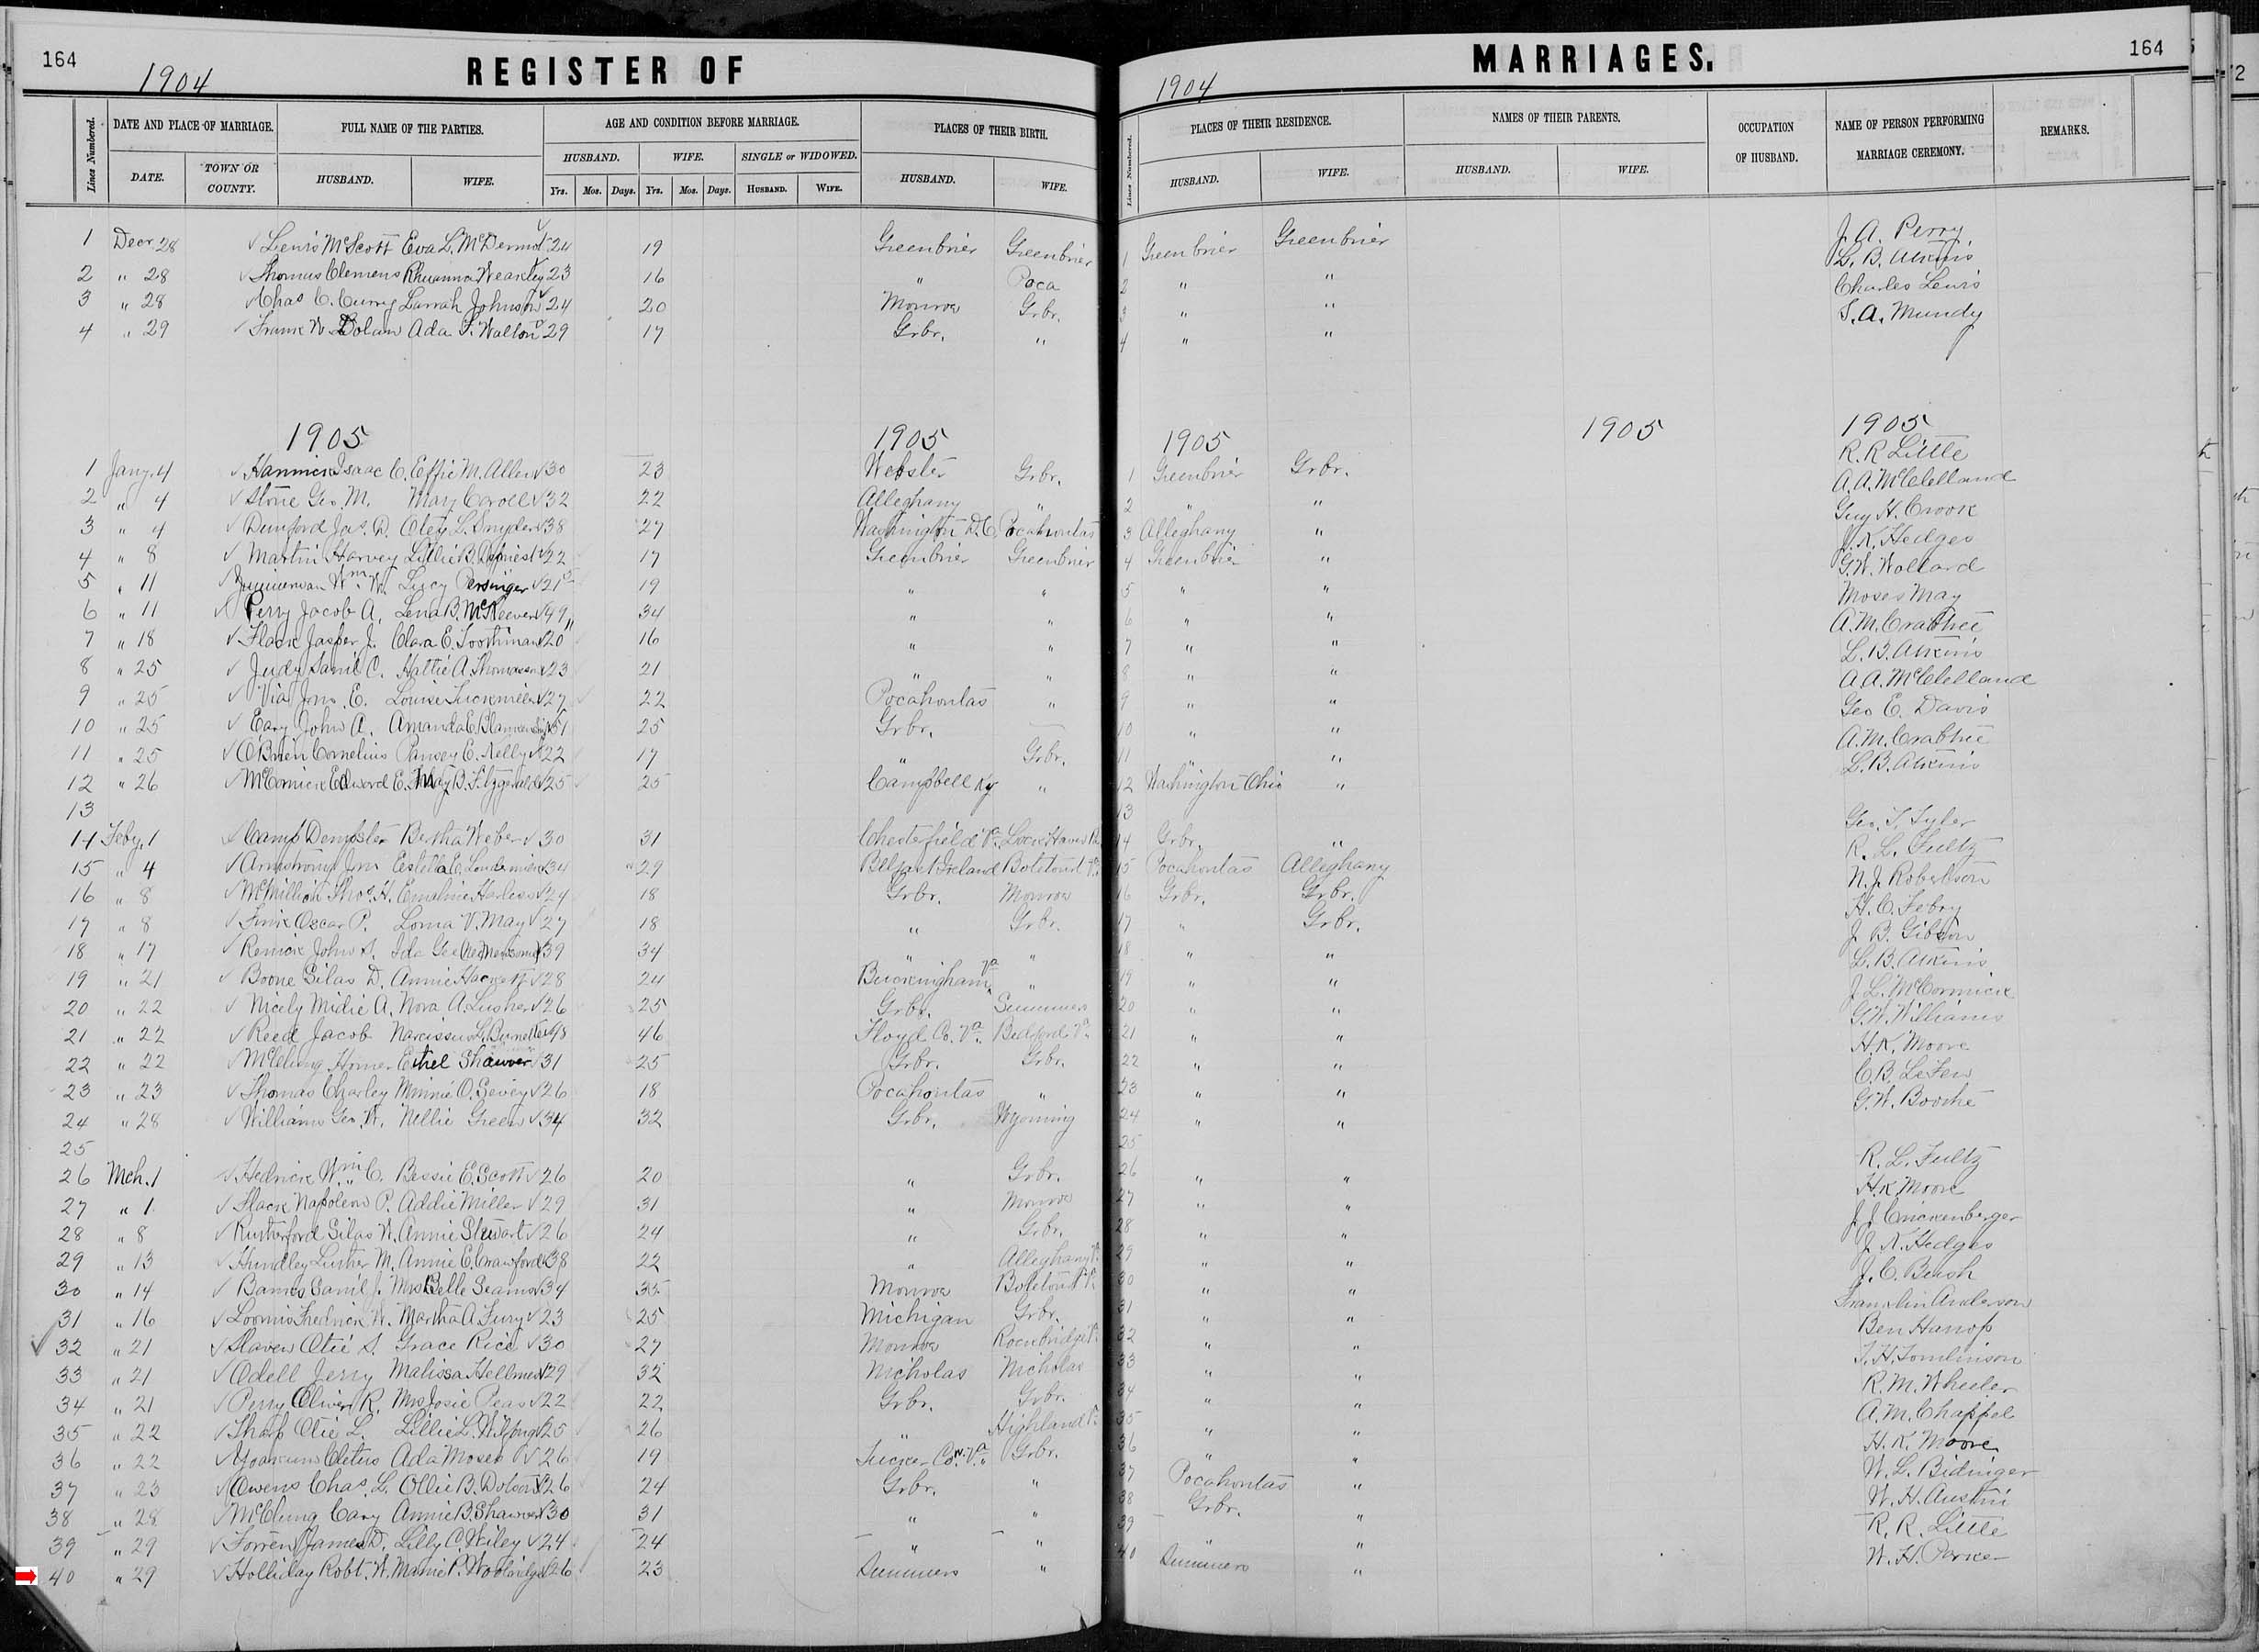 164
1904
REGISTER OF
MARRIAGES.
1904
164
Lines Numbered. DATE AND PLACE OF MARRIAGE. FULL NAME OF THE PARTIES. AGE AND CONDITION BEFORE MARRIAGE. PLACES OF THEIR BIRTH. Lines Numbered. PLACES OF THEIR RESIDENCE. NAMES OF THEIR PARENTS. OCCUPATION OF HUSBAND. NAME OF PERSON PERFORMING MARRIAGE CEREMONY. REMARKS.
HUSBAND. WIFE. SINGLE or WIDOWED.
DATE. TOWN OR COUNTY. HUSBAND. WIFE. Yrs. Mos. Days. Yrs. Mos. Days. HUSBAND. WIFE. HUSBAND. WIFE. HUSBAND. WIFE. HUSBAND. WIFE.
1 Decr. 28 Lewis McScott Eva L. McDermot 24 19 Greenbrier Greenbrier 1 Greenbrier Greenbrier J. A. Perry
2 " 28 Thomas Clemens 23 16 " Poca 2 " " L. B. Atkins
3 " 28 Chas C. Curry Larrah Johnson 24 20 Monroe Grbr. 3 " " Charles Lewis
4 " 29 Frank W. Dolan Ada F. Walton 29 17 Grbr. " 4 " " S. A. Mundy
1905 1905 1905 1905 1905
1 Jany. 4 Isaac C. Effie M. Allen 30 23 Webster Grbr. 1 Greenbrier Grbr. R. R Little
2 " 4 Stone Geo. M. Mary Caroll 32 22 Alleghany " 2 " " A. A. McClelland
3 " 4 Dunford Jas. D. Otey L. Snyder 38 27 Washington D.C. Pocahontas 3 Alleghany " Guy H. Crook
4 " 8 Martin Harvey Lillie B. 22 17 Greenbrier Greenbrier 4 Greenbrier " Hedges
5 " 11 Wm. W. Lucy Persinger 21 19 " " 5 " " G. W. Wollard
6 " 11 Perry Jacob A. Lena B. McKeever 49 34 " " 6 " " Moses May
7 " 18 Flack Jasper J. Clara E. Toothman 20 16 " " 7 " " A. M. Crabtree
8 " 25 Judy Saml C. Hattie A. Thomason 23 21 " " 8 " " L. B. Atkins
9 " 25 Via Jno. E. Louise Tuckwiller 27 22 Pocahontas " 9 " " A. A. McClelland
10 " 25 Eary John A. Amanda E. 51 25 Grbr. — 10 " " Geo E. Davis
11 " 25 O'Brien Cornelius Pansey E. Kelly 22 17 " Grbr. 11 " " A. M. Crabtree
12 " 26 McCormick Edward E. May B. Fitzgerald 25 25 Campbell Ky " 12 Washington Ohio " L. B. Atkins
13 13
14 Feby. 1 Camp Dempster Bertha Weber 30 31 Chesterfield Va. Lock Haven Pa. 14 Grbr. " Geo. T. Tyler
15 " 4 Armstrong Jno Estella E. 34 29 Belfast Ireland Botetourt Va. 15 Pocahontas Alleghany R. L. Fultz
16 " 8 McMillion Thos. H. Emaline Harless 24 18 Grbr. Monroe 16 Grbr. Grbr. N. J. Robertson
17 " 8 Fink Oscar P. Lorna V. May 27 18 " Grbr. 17 " Grbr. H. C. Febry
18 " 17 Renick John A. Ida 39 34 " " 18 " " J. B. Gibson
19 " 21 Boone Silas D. Annie Hackett 28 24 Buckingham Va " 19 " " L. B. Atkins
20 " 22 Nicely Midie A. Nora A. Lusher 26 25 Grbr. Summers 20 " " J. L. McCormick
21 " 22 Reed Jacob Narcissus L. Burnette 48 46 Floyd Co. Va. Bedford Va. 21 " " G. W. Williams
22 " 22 McClung Homer Ethel Shawver 31 25 Grbr. Grbr. 22 " " H. K. Moore
23 " 23 Thomas Charley Minnie O. Sevey 26 18 Pocahontas " 23 " " C. B. LeFew
24 " 28 Williams Geo. W. Nellie Green 34 32 Grbr. Wyoming 24 " " G. W. Boothe
25 25
26 Mch. 1 Hedrick Wm. C. Bessie E. Scott 26 20 " Grbr. 26 " " R. L. Fultz
27 " 1 Flack Napoleon P. Addie Miller 29 31 " Monroe 27 " " H. K Moore
28 " 8 Rutherford Silas W. Annie Stewart 26 24 " Grbr. 28 " " J. J. Crickenberger
29 " 13 Hundley Luther M. Annie E. Crawford 38 22 " Alleghany Va. 29 " " J. K. Hedges
30 " 14 Barnes Saml J. Mrs Belle Seams 34 35 Monroe Botetourt Va. 30 " " J. C. Beash
31 " 16 Loomis Fredrick W. Martha A. Fury 23 25 Michigan Grbr. 31 " " Franklin Anderson
32 " 21 Slaven Otie S. Grace Rice 30 27 Monroe Rockbridge Va. 32 " " Ben Harrop
33 " 21 Odell Jerry Malissa Hellmes 29 32 Nicholas Nicholas 33 " " T. H. Tomlinson
34 " 21 Perry Oliver R. Mrs Josie Peas 22 22 Grbr. Grbr. 34 " " R. M. Wheeler
35 " 22 Sharp Otie L. Lillie L. Wilfong 25 26 " Highland Va. 35 " " A. M. Chappel
36 " 22 Yoakum Cletus Ada Moses 26 19 Tucker Co. W. Va. Grbr. 36 " " H. K. Moore
37 " 23 Owens Chas. L. Ollie B. Dotson 26 24 Grbr. " 37 Pocahontas " W. L. Bidinger
38 " 28 McClung Cary Annie B. Shawver 30 31 " " 38 Grbr. " W. H. Austin
39 " 29 Forren James D. Lilly C. Wiley 24 24 " " 39 " R. R. Little
40 " 29 Holliday Robt. W. Mamie P. Wooldridge 26 23 Summers " 40 Summers " W. H. Parker